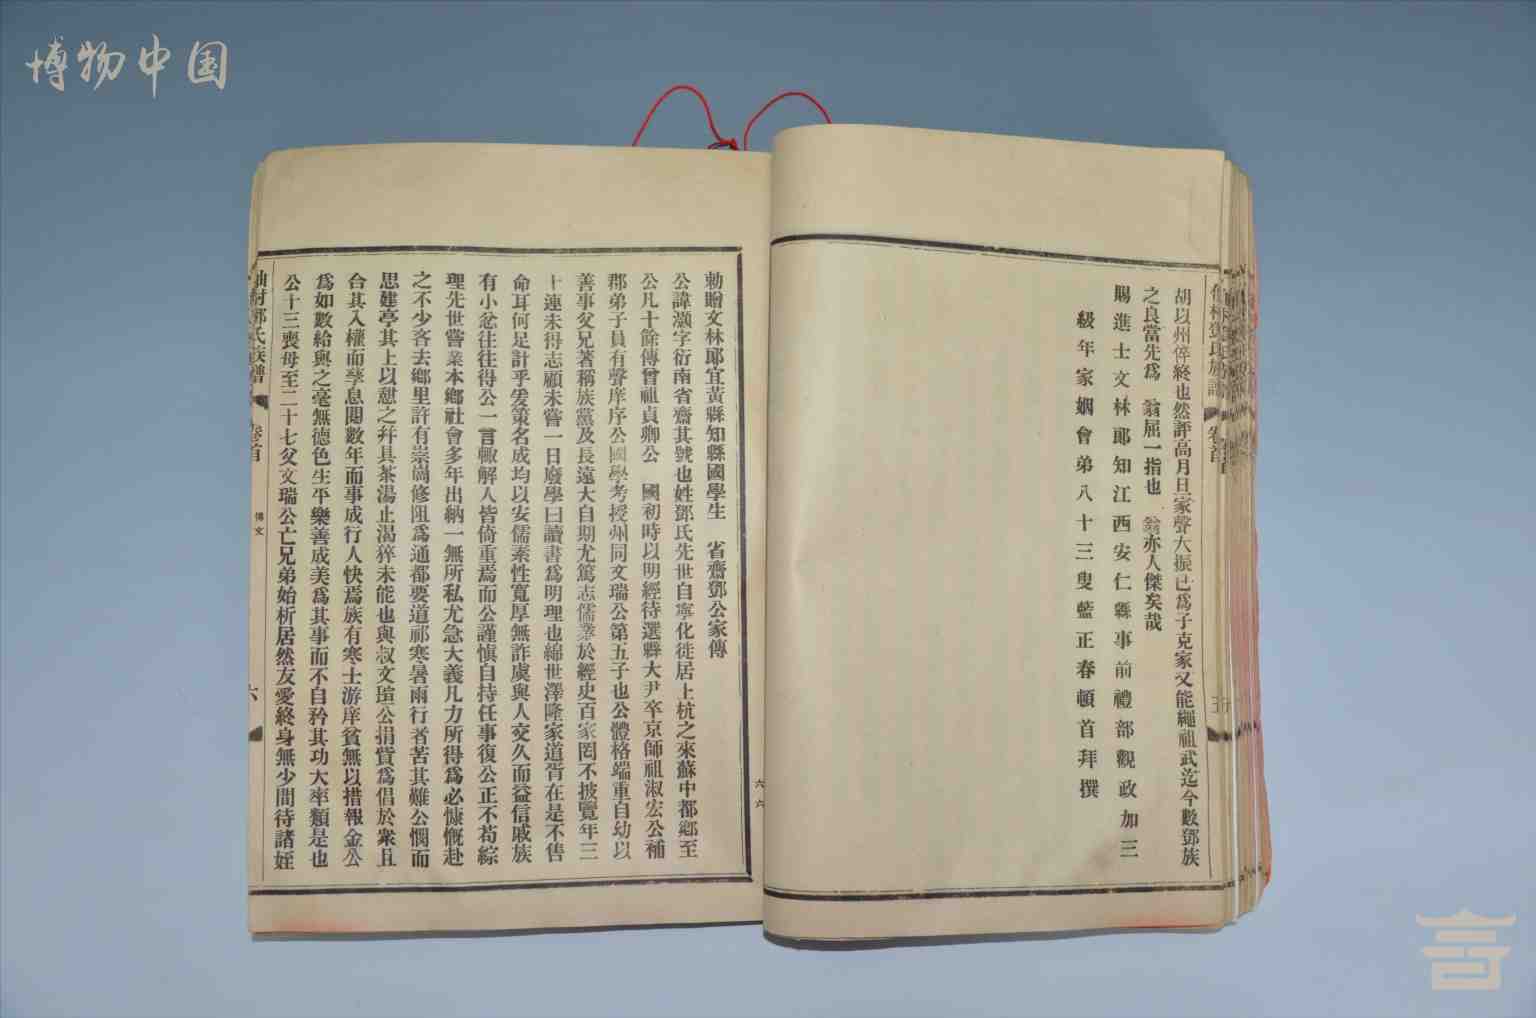 博物中国
胡以州倅終也然評高月旦家聲大振已爲子克家又能繩祖武迄今數鄧族
之良當先爲 翁屈一指也 翁亦人傑矣哉
賜進士文林郎知江西安仁縣事前禮部觀政加三
級年家姻會弟八十三叟藍正春頓首拜撰
勅贈文林郎宜黃縣知縣國學生 省齋鄧公家傳
公諱灝字衍南省齋其號也姓鄧氏先世自寧化徒居上杭之來蘇中都鄉至
公凡十餘傳曾祖貞卿公 國初時以明經待選縣大尹卒京師祖淑宏公補
郡弟子員有聲庠序公國學考授州同文瑞公第五子也公體格端重自幼以
善事父兄著稱族黨及長遠大自期尤篤志儒業於經史百家罔不披覽年三
十連未得志顧未嘗一日廢學曰讀書爲明理也綿世澤隆家道胥在是不售
命耳何足計乎爰策名成均以安儒素性寬厚無詐虞與人交久而益信戚族
有小忿往往得公一言輙解人皆倚重焉而公謹愼自持任事復公正不苟綜
理先世嘗業本鄉社會多年出納一無所私尤急大義凡力所得爲必慷慨赴
之不少吝去鄉里許有崇崗修阻爲通都要道祁寒暑雨行者苦其難公憫而
思建亭其上以憇之幷具茶湯止渴猝未能也與叔文瑄公捐貲爲倡於衆且
合其入權而孳息閱數年而事成行人快焉族有寒士游庠貧無以措報金公
爲如數給與之毫無德色生平樂善成美爲其事而不自矜其功大率類是也
公十三喪母至二十七父文瑞公亡兄弟始析居然友愛終身無少間待諸姪
氏族譜 卷首 傳文 六